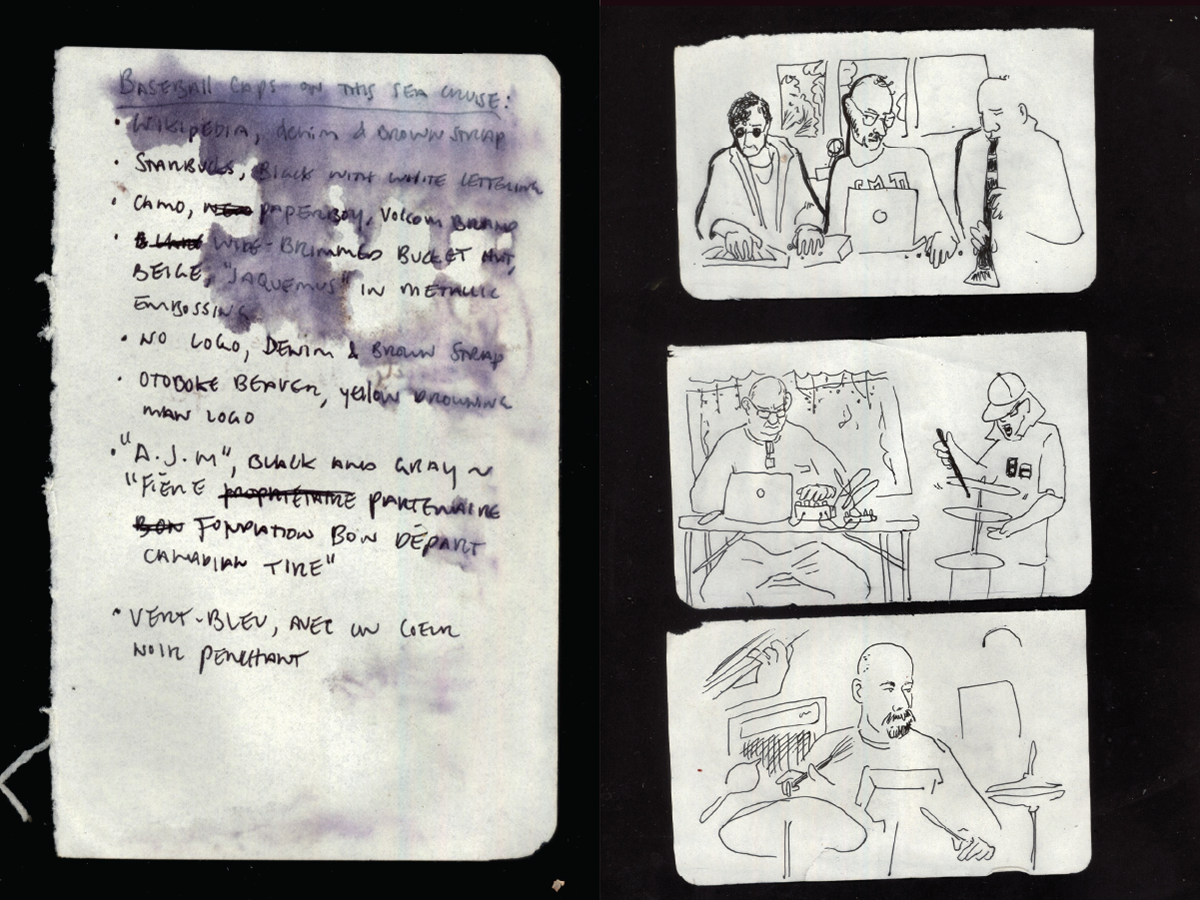 BASEBALL CAPS ON THIS SEA CRUISE:
• WIKIPEDIA, denim & BROWN STRAP
• STARBUCKS, BLACK WITH WHITE LETTERING
• CAMO, PAPERBOY, Volcom BRAND
• WIDE-BRIMMED BUCKET HAT,
BEIGE, "JAQUEMUS" IN METALLIC
EMBOSSING
• NO LOGO, DENIM & BROWN STRAP
• OTOBOKE BEAVER, yellow DROWNING
MAN LOGO
• "A.J.M", BLACK AND GRAY ~
"FIÈRE PROPRIÉTAIRE PARTENAIRE
BON FONDATION BON DÉPART
CANADIAN TIRE"
• VERT-BLEU, AVEC UN COEUR
NOIR PENCHANT